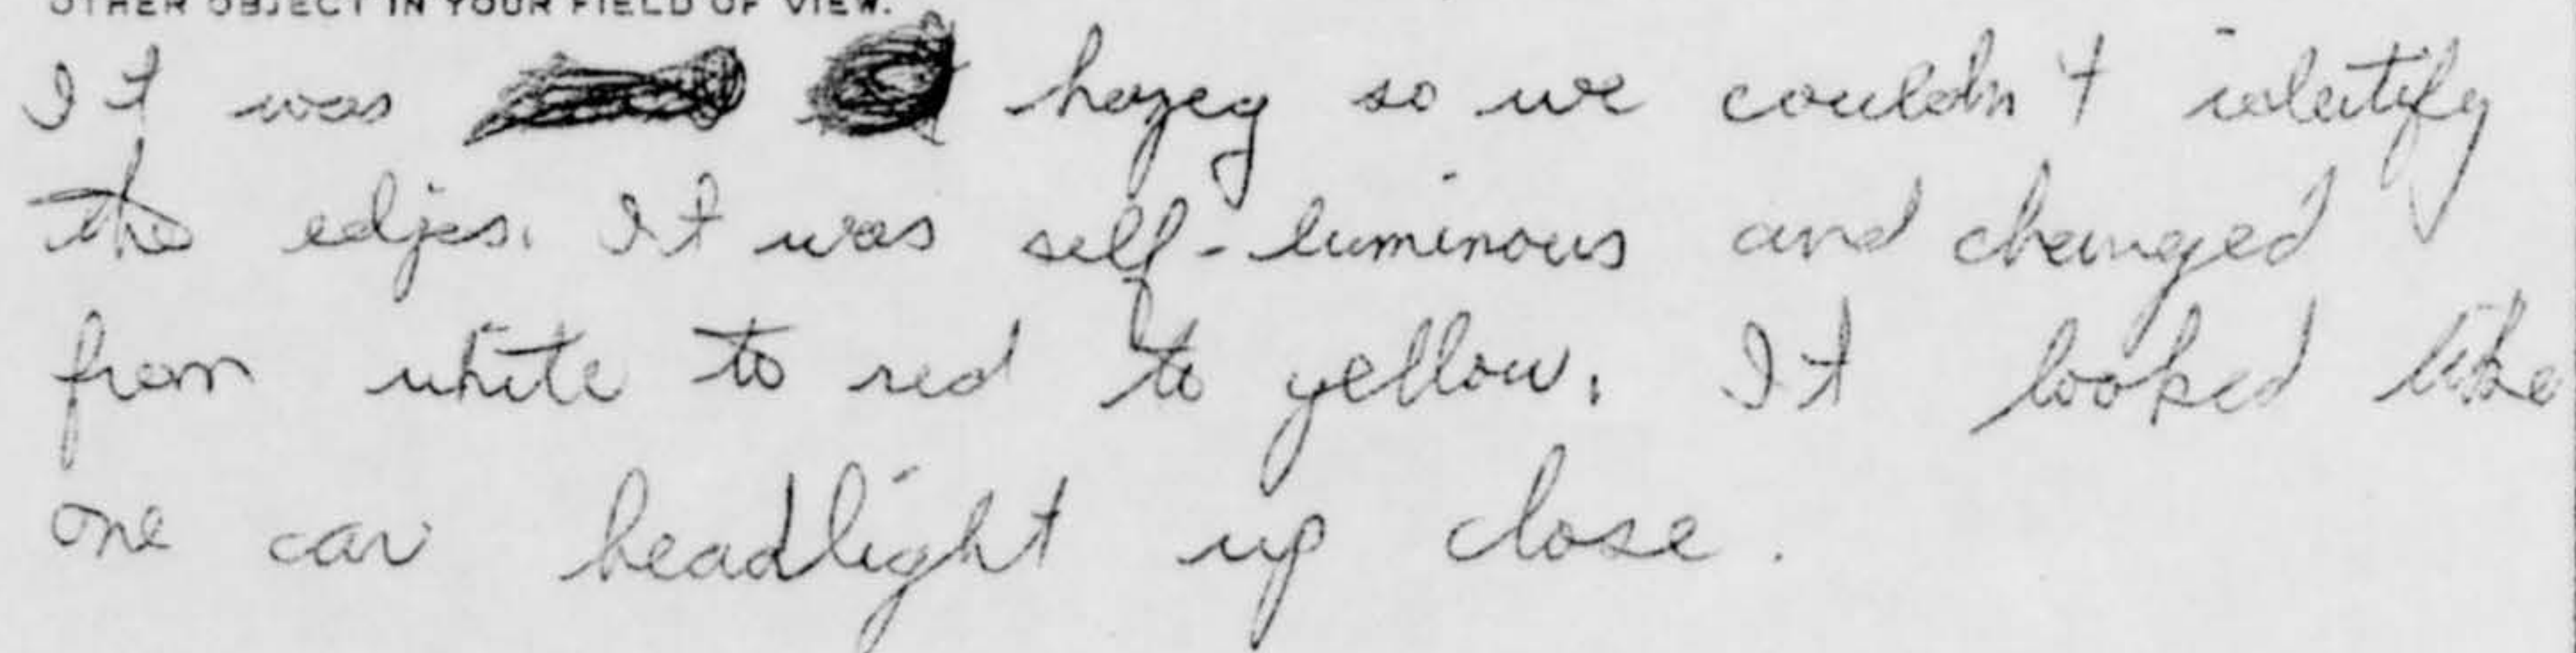 OTHER OBJECT IN YOUR FIELD OF VIEW.
It was hazey so we couldn't identify
the edjes. It was self-luminous and changed
from white to red to yellow. It looked like
one car headlight up close.